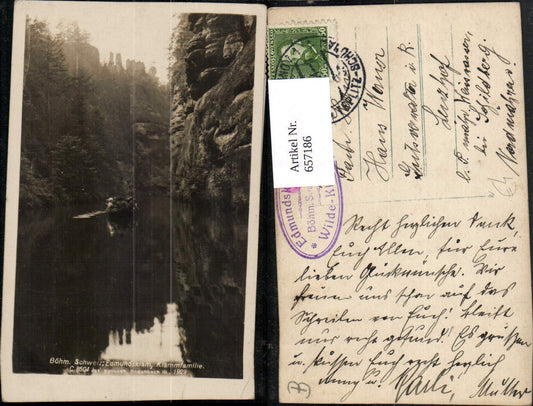 Böhm. Schweiz, Edmundsklam, Klammfamilie.
1929
Artikel Nr.
657186
Edmundsk
Böhm. S
Wilde-K
Hans
Gutsverwalter i. R.
Lenzhof
b. P.
bei Schildberg
Nordmähren!
Recht herzlichen Dank,
Euch Allen, für Eure
lieben Glückwünsche. Wir
freuen uns schon auf das
Schreiben von Euch! bleibt
uns recht gesund! Es grüssen
u. küssen Euch recht herzlich
u. Mutter